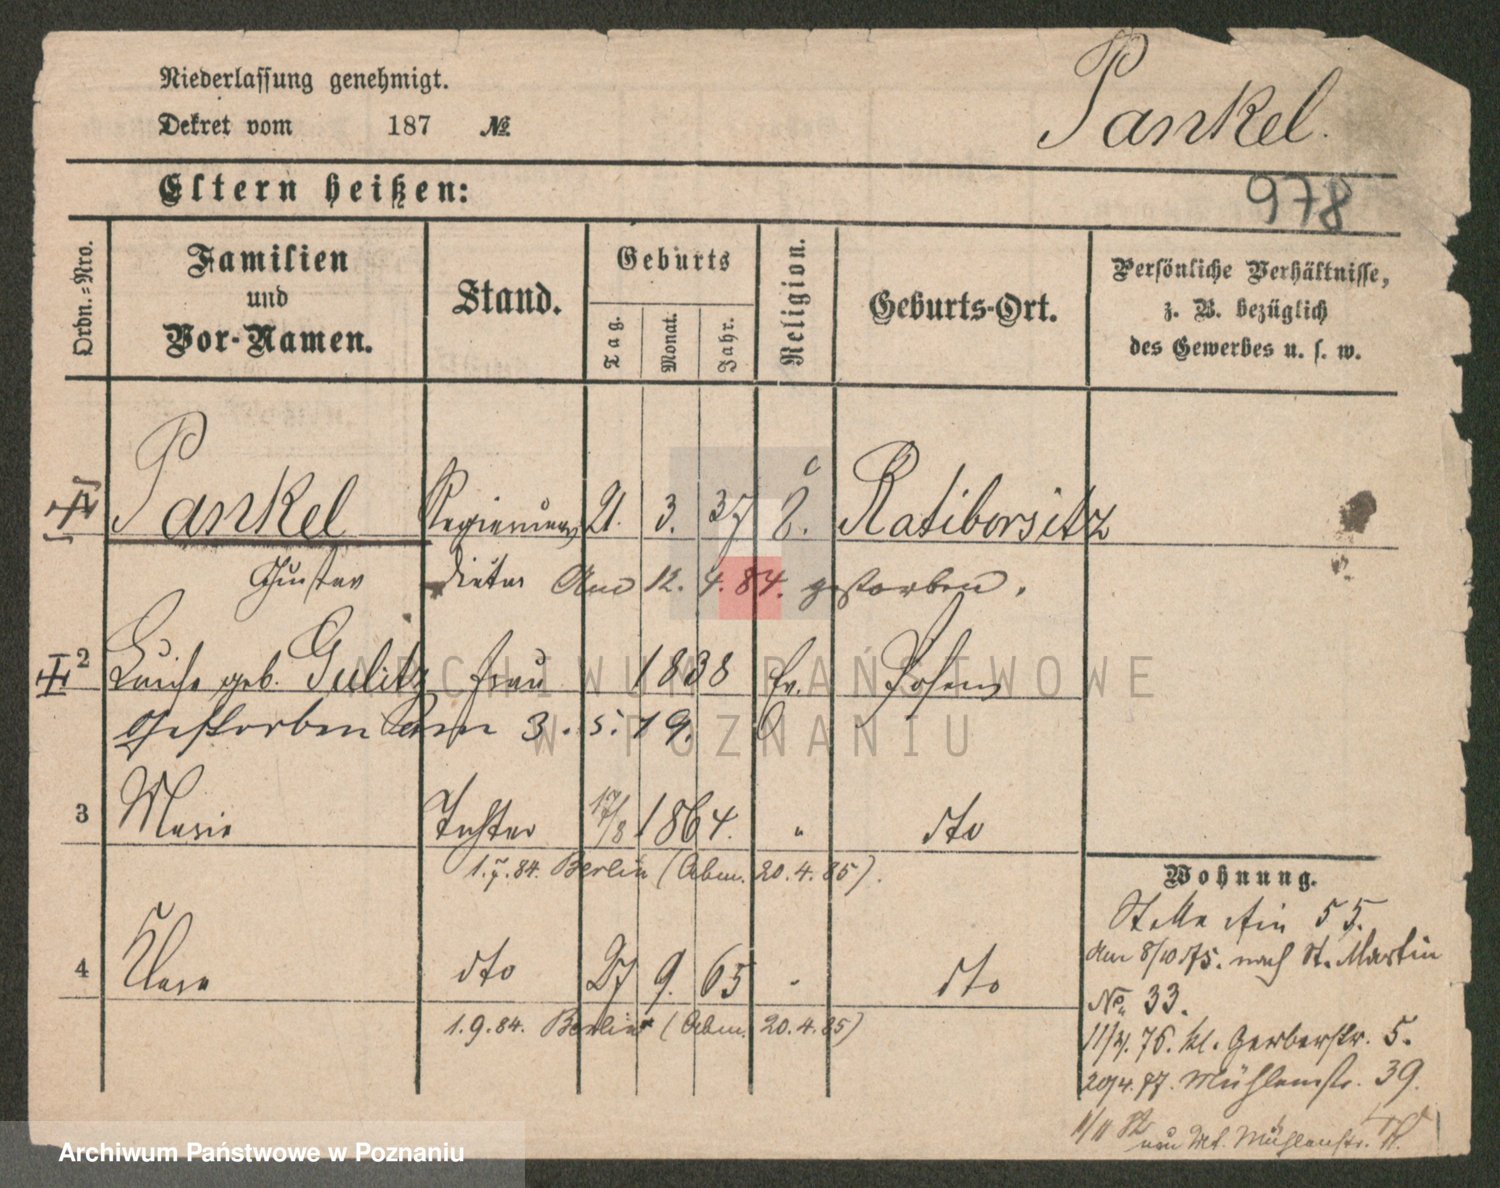 Niederlassung genehmigt.
Pankel.
Dekret vom 187 №
Eltern heißen:
978
Ordn.-Nro.
Familien und Vor-Namen.
Stand.
Geburts
Tag.
Monat.
Jahr.
Religion.
Geburts-Ort.
Persönliche Verhältnisse,
z. B. bezüglich
des Gewerbes u. s. w.
Pankel Regierungs 21. 3. 37 Ratiborsitz
Gustav Diätar Am 12. 4. 84. gestorben.
2 Luise geb. Gulitz Frau 1838 Ev. Posen
Gestorben am 3. 5. 19.
3 Marie Tochter 17/8 1864. " dto
1. 7. 84. Berlin (Abm. 20. 4. 85).
4 Clara dto 27 9. 65 " dto
1. 9. 84. Berlin (Abm. 20. 4. 85)
Wohnung.
55.
am 8/10 75. nach St. Martin
No. 33.
76. kl. Gerberstr. 5.
Mühlenstr. 39.
Mühlenstr.
ARCHIWUM PAŃSTWOWE
W POZNANIU
Archiwum Państwowe w Poznaniu